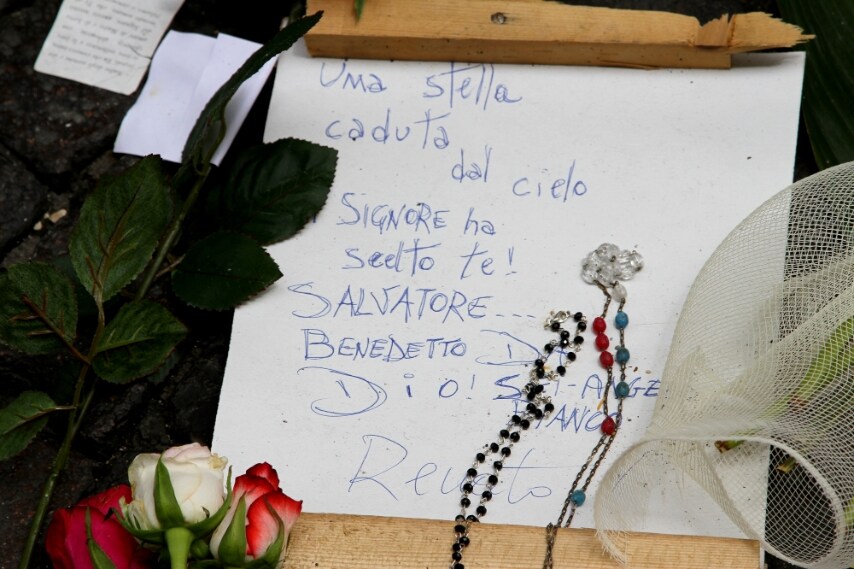 Uma stella
caduta
dal cielo
SIGNORE ha
scelto te!
SALVATORE...
BENEDETTO DA
Dio! SEI ANGE
BIANCO
Renato